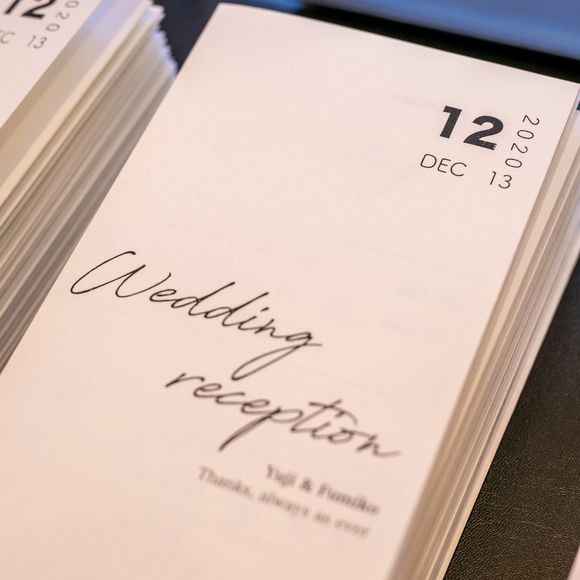 12
2020
DEC 13
12
2020
DEC 13
Wedding
reception
Yuji & Fumiko
Thanks, always as ever